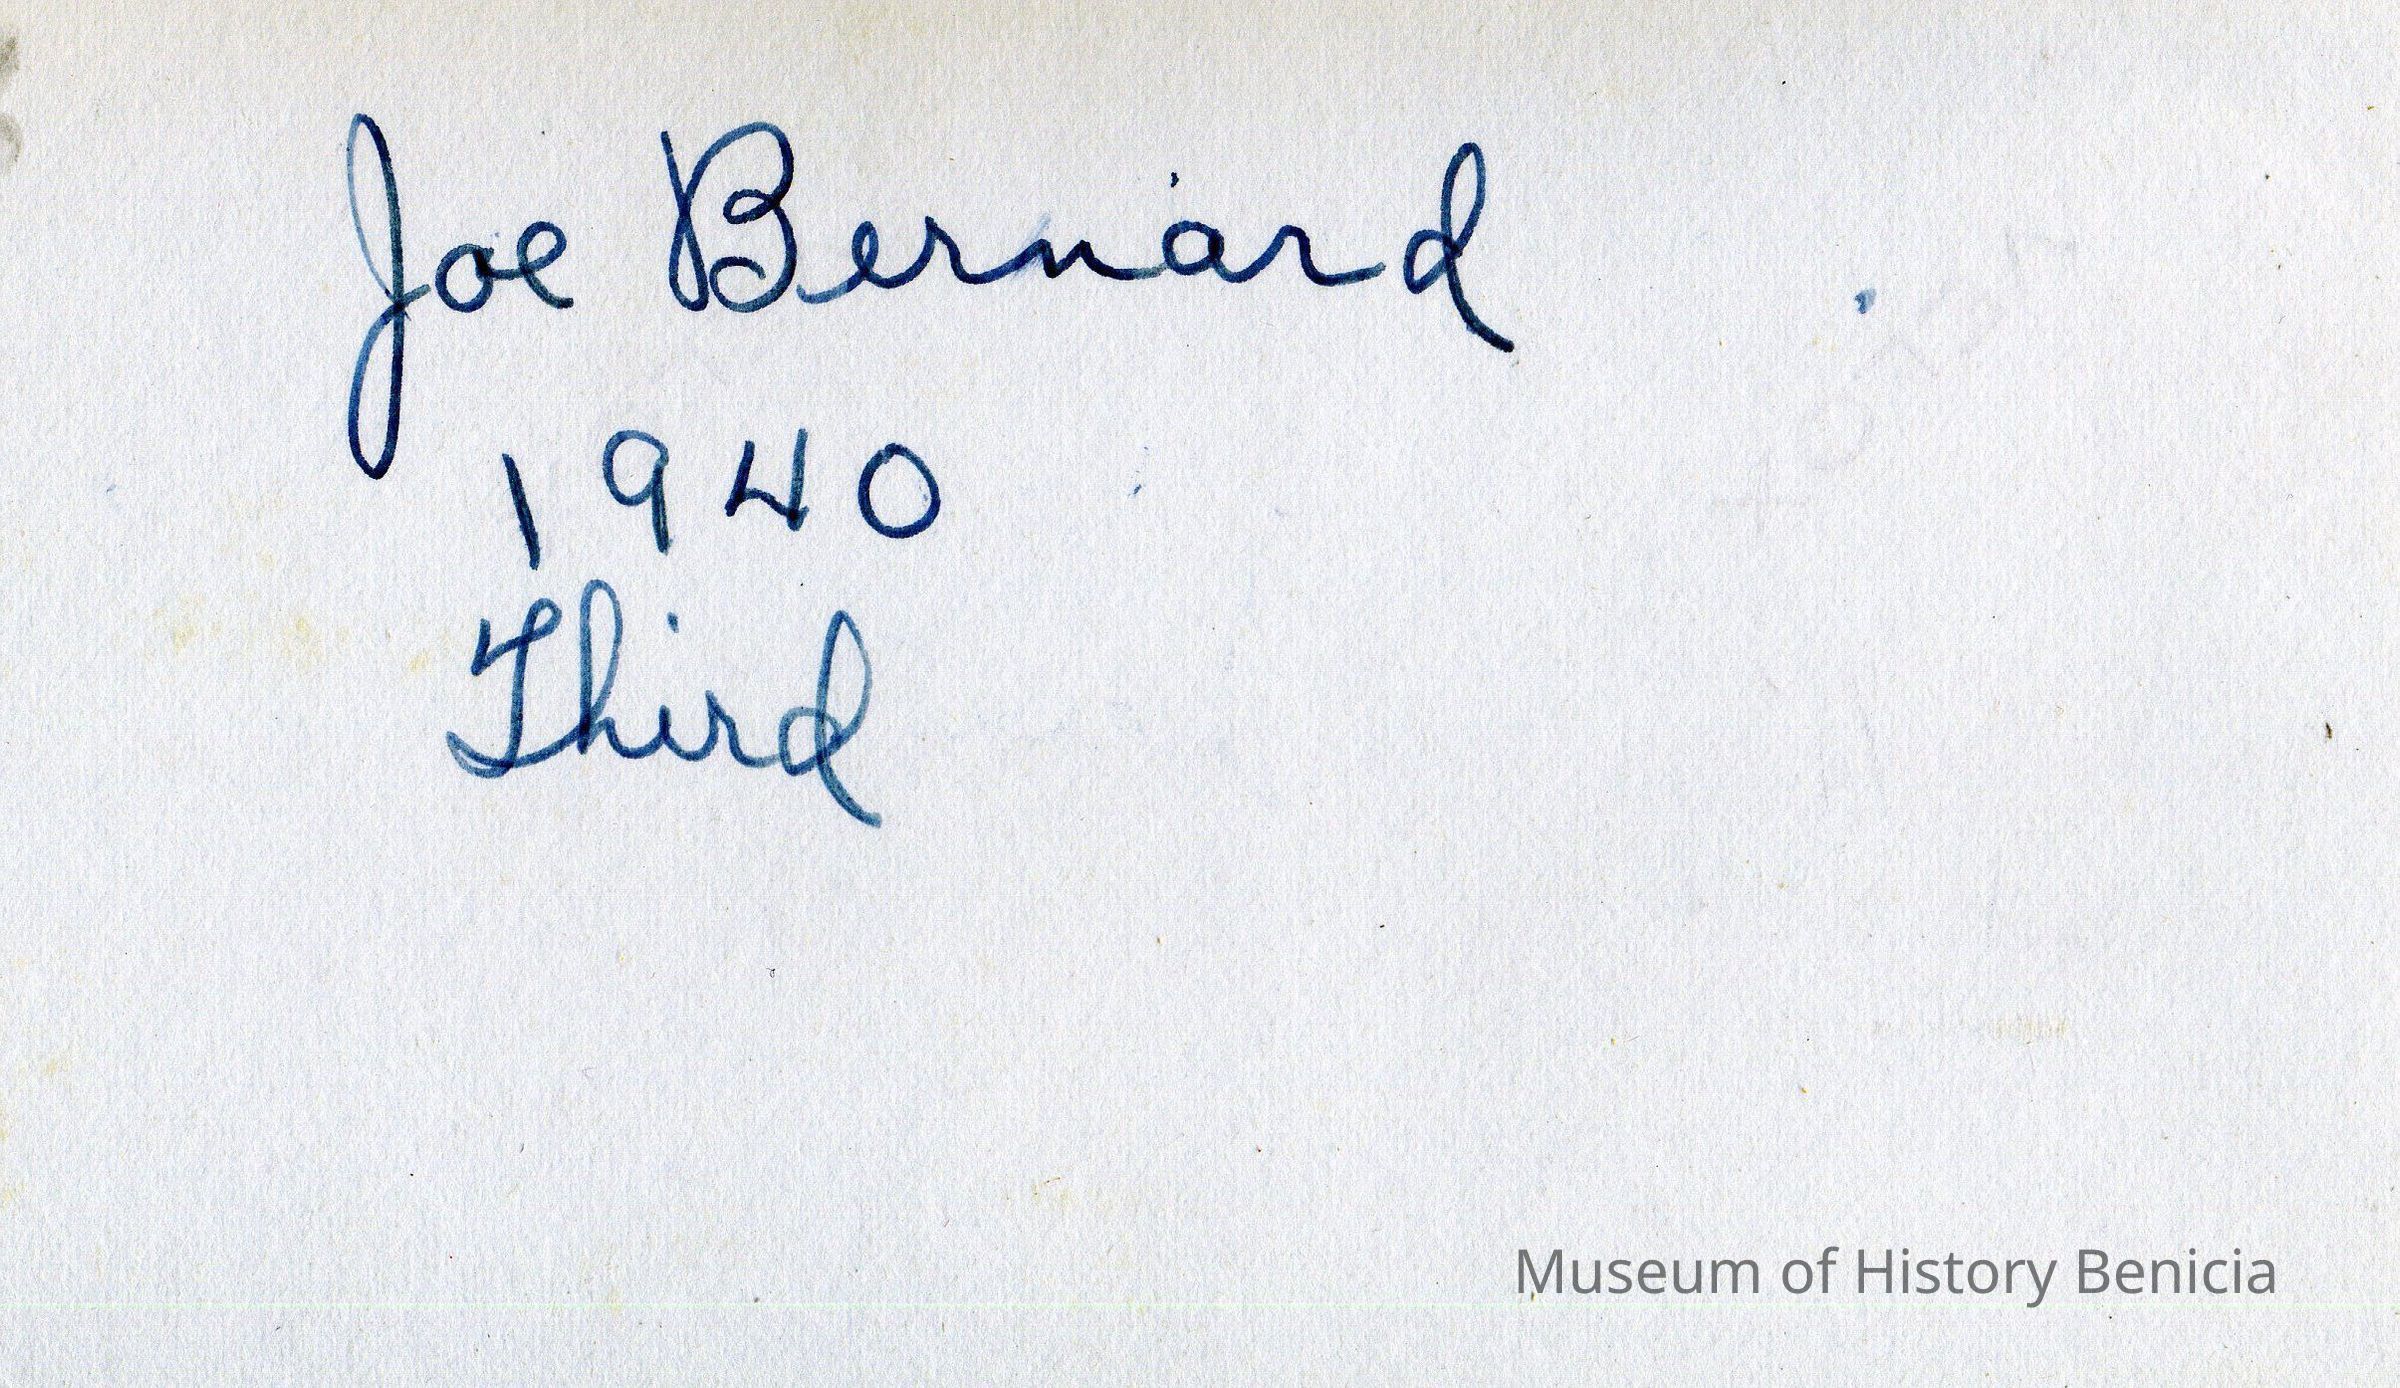 Joe Bernard
1940
Third
Museum of History Benicia